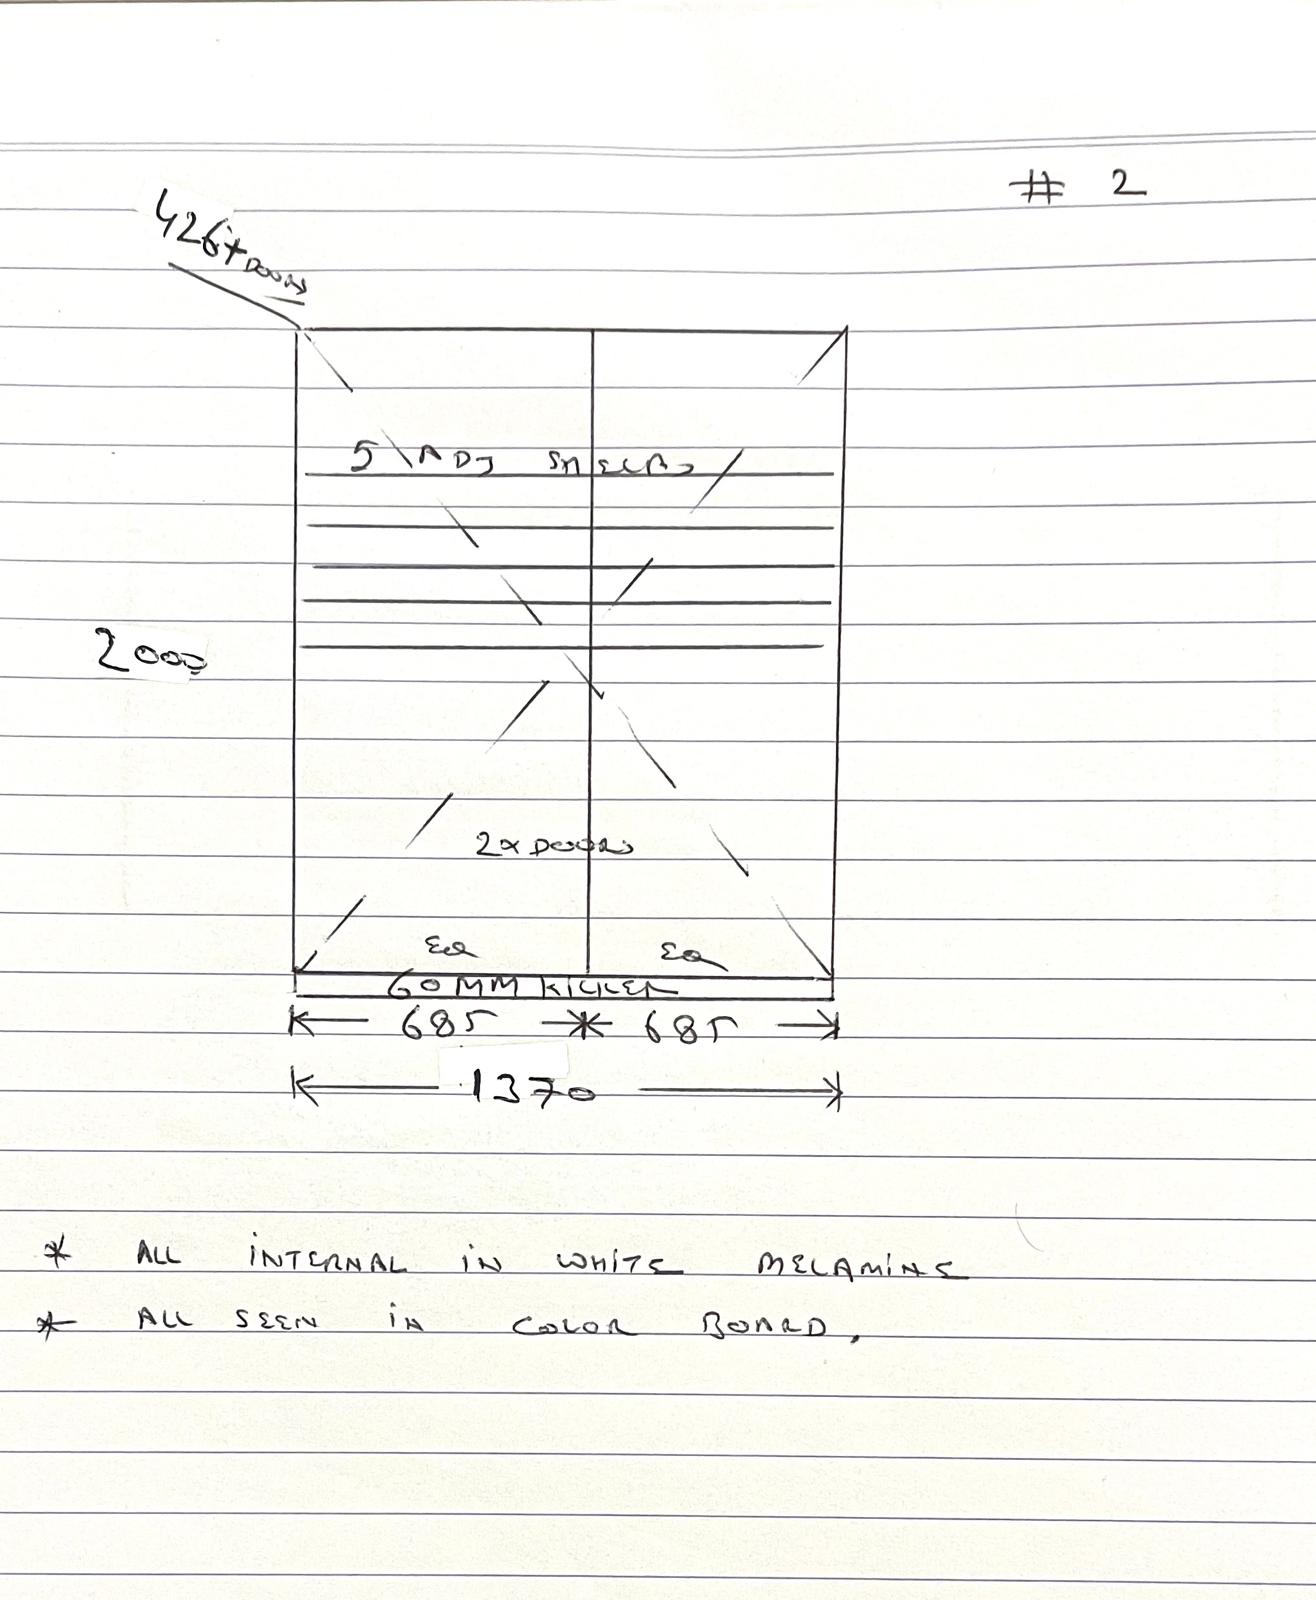 # 2
426+DOORS
5 ADJ SHELBS
2000
2x DOORS
EQ EQ
60MM KICKER
685 685
1370
* ALL INTERNAL IN WHITE MELAMINE
* ALL SEEN IN COLOR BOARD.